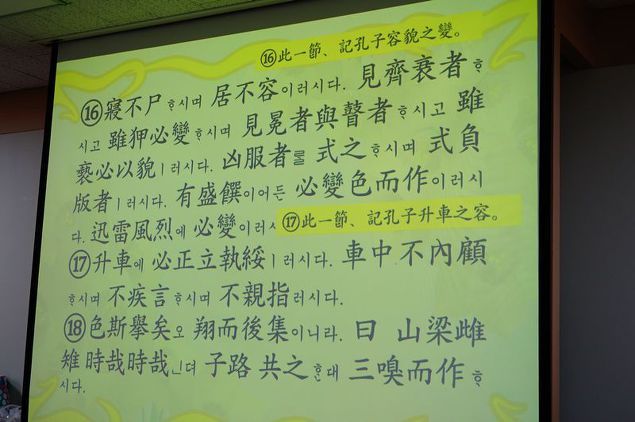 ⑯此一節、記孔子容貌之變。
⑯寢不尸ᄒᆞ시며 居不容이러시다. 見齊衰者ᄒᆞ
시고 雖狎必變ᄒᆞ시며 見冕者與瞽者ᄒᆞ시고 雖
褻必以貌ㅣ러시다. 凶服者를 式之ᄒᆞ시며 式負
版者ㅣ러시다. 有盛饌이어든 必變色而作이러시
다. 迅雷風烈에 必變이러시
⑰此一節、記孔子升車之容。
⑰升車에 必正立執綏ㅣ러시다. 車中不內顧
ᄒᆞ시며 不疾言ᄒᆞ시며 不親指러시다.
⑱色斯擧矣오 翔而後集이니라. 曰 山梁雌
雉 時哉時哉ㄴ뎌 子路 共之ᄒᆞᆫ대 三嗅而作ᄒᆞ
시다.